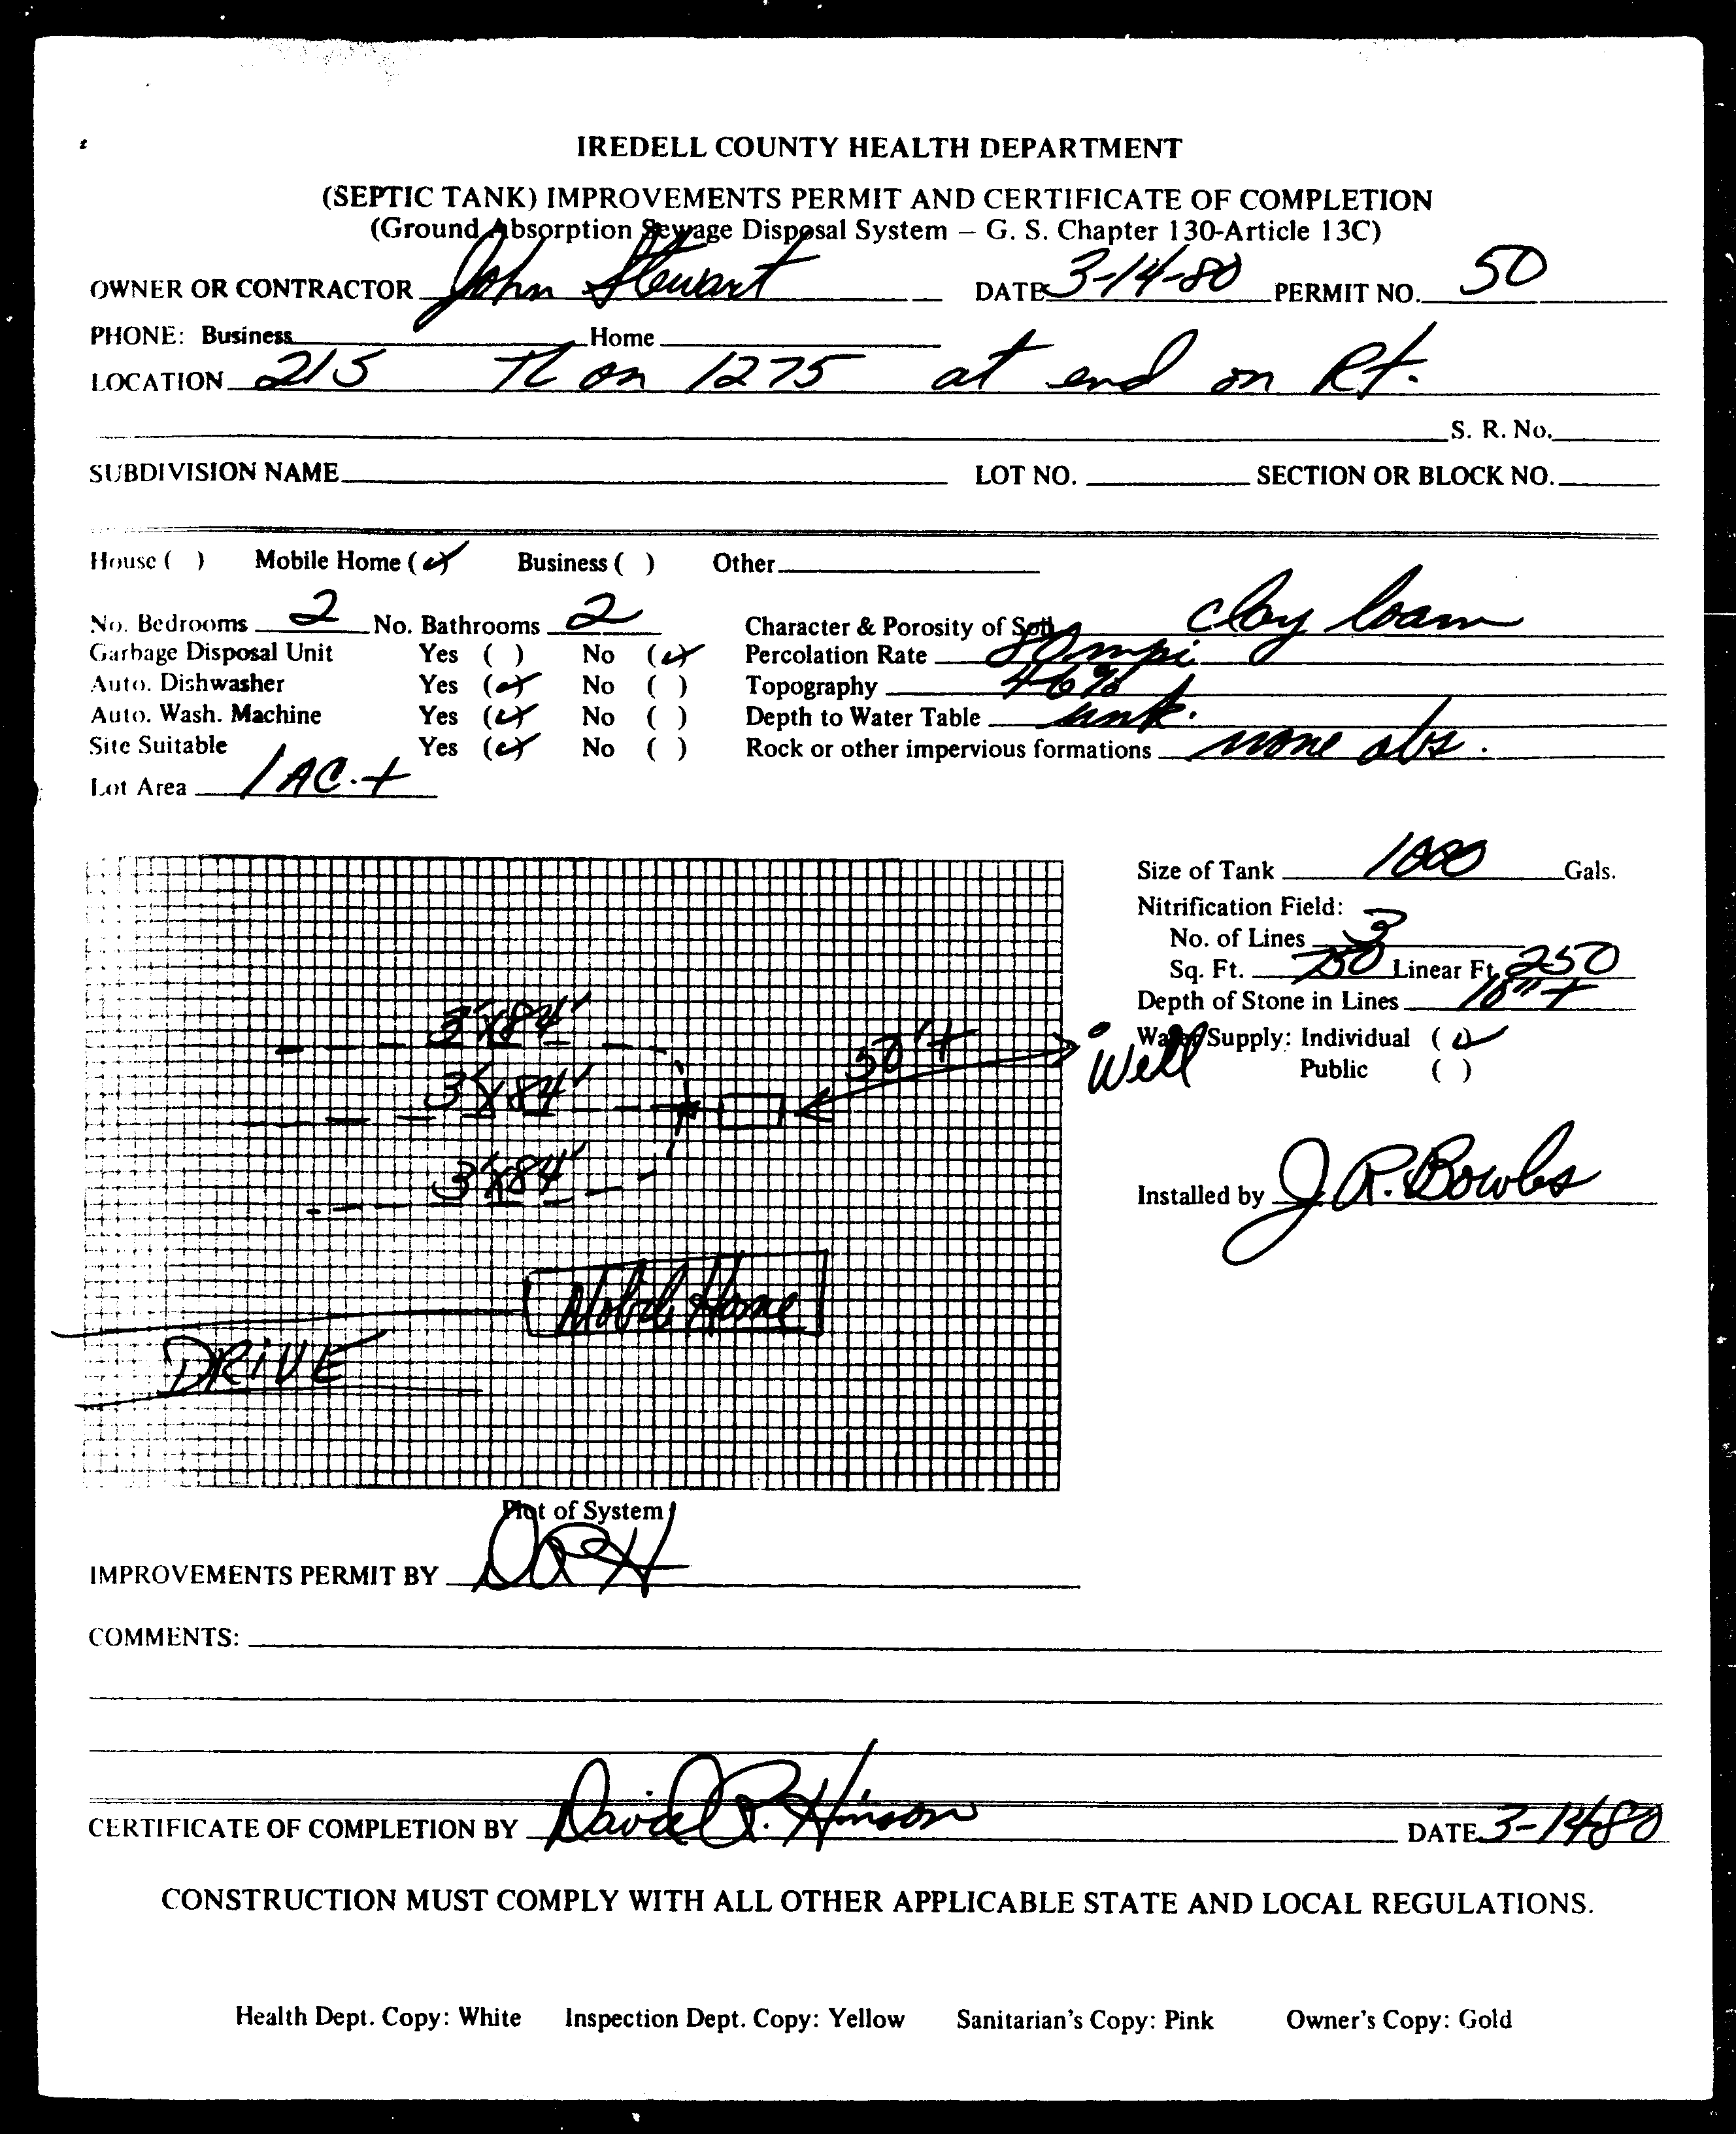 IREDELL COUNTY HEALTH DEPARTMENT
(SEPTIC TANK) IMPROVEMENTS PERMIT AND CERTIFICATE OF COMPLETION
(Ground Absorption Sewage Disposal System – G. S. Chapter 130-Article 13C)
OWNER OR CONTRACTOR John Stewart DATE 3-14-80 PERMIT NO. 50
PHONE: Business Home
LOCATION 21S TL on 1275 at end on Rt.
S. R. No.
SUBDIVISION NAME LOT NO. SECTION OR BLOCK NO.
House ( ) Mobile Home (✓) Business ( ) Other
No. Bedrooms 2 No. Bathrooms 2 Character & Porosity of Soil clay loam
Garbage Disposal Unit Yes ( ) No (✓) Percolation Rate 80 mpi
Auto. Dishwasher Yes (✓) No ( ) Topography
Auto. Wash. Machine Yes (✓) No ( ) Depth to Water Table unk.
Site Suitable Yes (✓) No ( ) Rock or other impervious formations none obs.
Lot Area 1 AC.+
Size of Tank 1000 Gals.
Nitrification Field:
No. of Lines 3
Sq. Ft. 750 Linear Ft. 250
Depth of Stone in Lines 10"+
Water Supply: Individual (✓)
Public ( )
3'x84'
50'+
Well
3'x84'
3'x84'
Installed by J.R. Bowles
Mobile Home
DRIVE
Plot of System
IMPROVEMENTS PERMIT BY DRH
COMMENTS:
CERTIFICATE OF COMPLETION BY David R. Hinson DATE 3-14-80
CONSTRUCTION MUST COMPLY WITH ALL OTHER APPLICABLE STATE AND LOCAL REGULATIONS.
Health Dept. Copy: White Inspection Dept. Copy: Yellow Sanitarian's Copy: Pink Owner's Copy: Gold